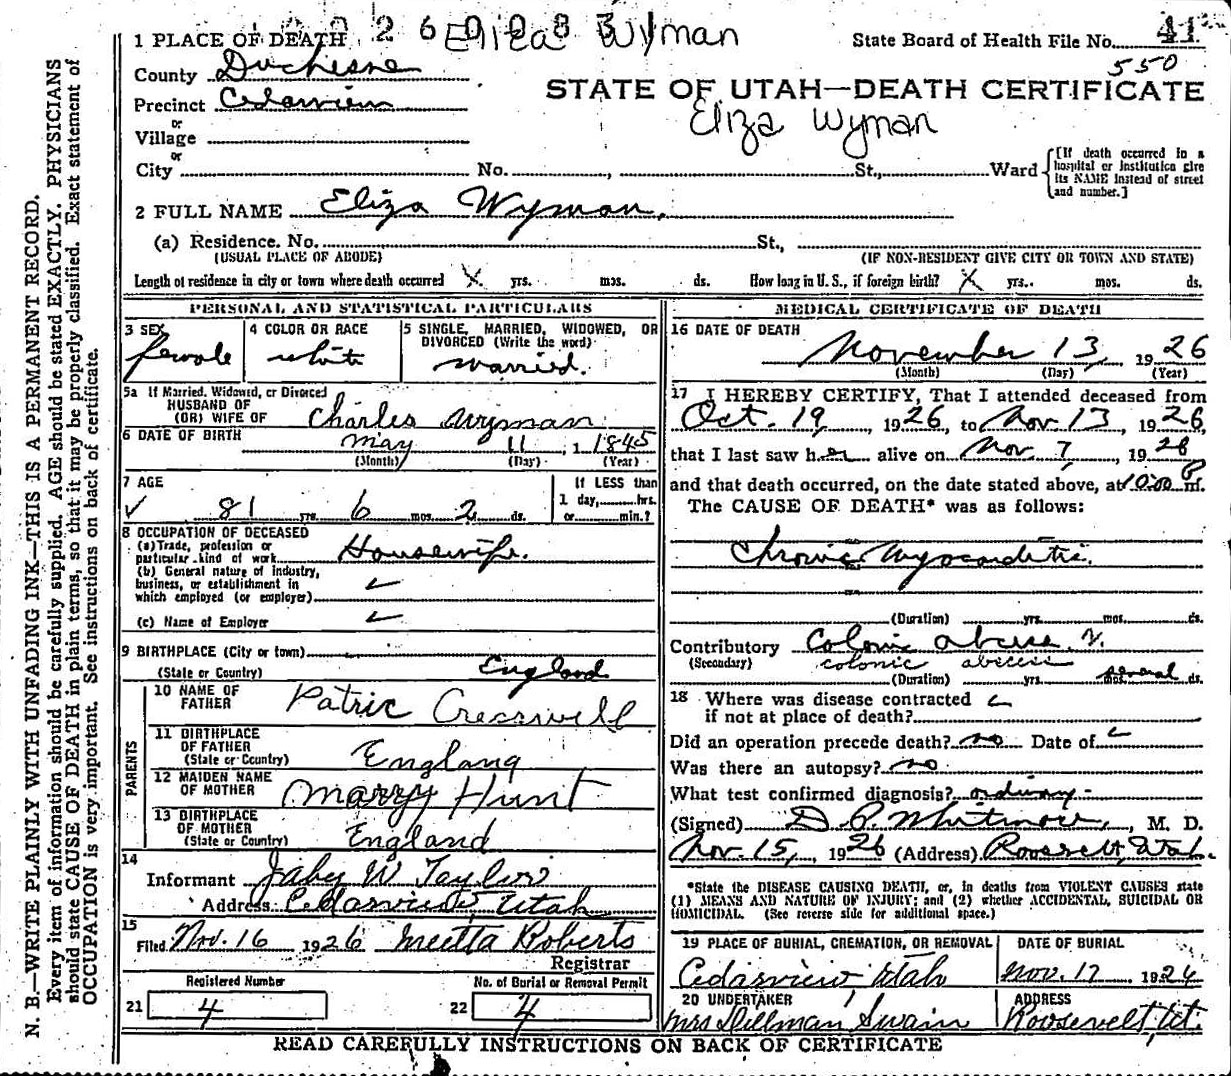 Eliza Wyman
1 PLACE OF DEATH
State Board of Health File No. 41
550
County Duchesne
STATE OF UTAH—DEATH CERTIFICATE
Precinct Cedarview
Eliza Wyman
or
Village
or
City No. , St., Ward
[If death occurred in a hospital or institution give its NAME instead of street and number.]
2 FULL NAME Eliza Wyman,
(a) Residence. No. St.,
(USUAL PLACE OF ABODE) (IF NON-RESIDENT GIVE CITY OR TOWN AND STATE)
Length of residence in city or town where death occurred X yrs. mos. ds. How long in U. S., if foreign birth? X yrs. mos. ds.
PERSONAL AND STATISTICAL PARTICULARS
3 SEX
female
4 COLOR OR RACE
white
5 SINGLE, MARRIED, WIDOWED, OR
DIVORCED (Write the word)
married.
5a If Married, Widowed, or Divorced
HUSBAND OF
(OR) WIFE OF Charles Wyman
6 DATE OF BIRTH May 11, 1845
(Month) (Day) (Year)
7 AGE
81 yrs. 6 mos. 2 ds.
If LESS than
1 day, hrs.
or min.?
8 OCCUPATION OF DECEASED
(a) Trade, profession or
particular kind of work Housewife.
(b) General nature of industry,
business, or establishment in
which employed (or employer)
(c) Name of Employer
9 BIRTHPLACE (City or town)
(State or Country) England
PARENTS
10 NAME OF
FATHER Patric Cresswell
11 BIRTHPLACE
OF FATHER
(State or Country) England
12 MAIDEN NAME
OF MOTHER Marry Hunt
13 BIRTHPLACE
OF MOTHER
(State or Country) England
14
Informant Jabey W Taylor
Address Cedarview, Utah
15
Filed Nov. 16 1926 Meetta Roberts
Registrar
Registered Number
21 4
No. of Burial or Removal Permit
22 4
MEDICAL CERTIFICATE OF DEATH
16 DATE OF DEATH
November 13, 1926
(Month) (Day) (Year)
17 I HEREBY CERTIFY, That I attended deceased from
Oct. 19, 1926, to Nov. 13, 1926,
that I last saw her alive on Nov. 7, 1926
and that death occurred, on the date stated above, at 10:00 P m.
The CAUSE OF DEATH* was as follows:
Chronic Myocarditis
(Duration) yrs. mos. ds.
Contributory Colonic abscess
(Secondary) colonic abscess
(Duration) yrs. mos. several ds.
18 Where was disease contracted
if not at place of death?
Did an operation precede death? no Date of
Was there an autopsy? no
What test confirmed diagnosis? ordinary
(Signed) D. P. Whitmore, M. D.
Nov. 15, 1926 (Address) Roosevelt, Utah.
*State the DISEASE CAUSING DEATH, or, in deaths from VIOLENT CAUSES state
(1) MEANS AND NATURE OF INJURY; and (2) whether ACCIDENTAL, SUICIDAL OR
HOMICIDAL. (See reverse side for additional space.)
19 PLACE OF BURIAL, CREMATION, OR REMOVAL
Cedarview, Utah
DATE OF BURIAL
Nov. 17 1926
20 UNDERTAKER
Mrs Dillman Swain
ADDRESS
Roosevelt, Ut.
READ CAREFULLY INSTRUCTIONS ON BACK OF CERTIFICATE
N. B.—WRITE PLAINLY WITH UNFADING INK—THIS IS A PERMANENT RECORD.
Every item of information should be carefully supplied. AGE should be stated EXACTLY. PHYSICIANS
should state CAUSE OF DEATH in plain terms, so that it may be properly classified. Exact statement of
OCCUPATION is very important. See instructions on back of certificate.